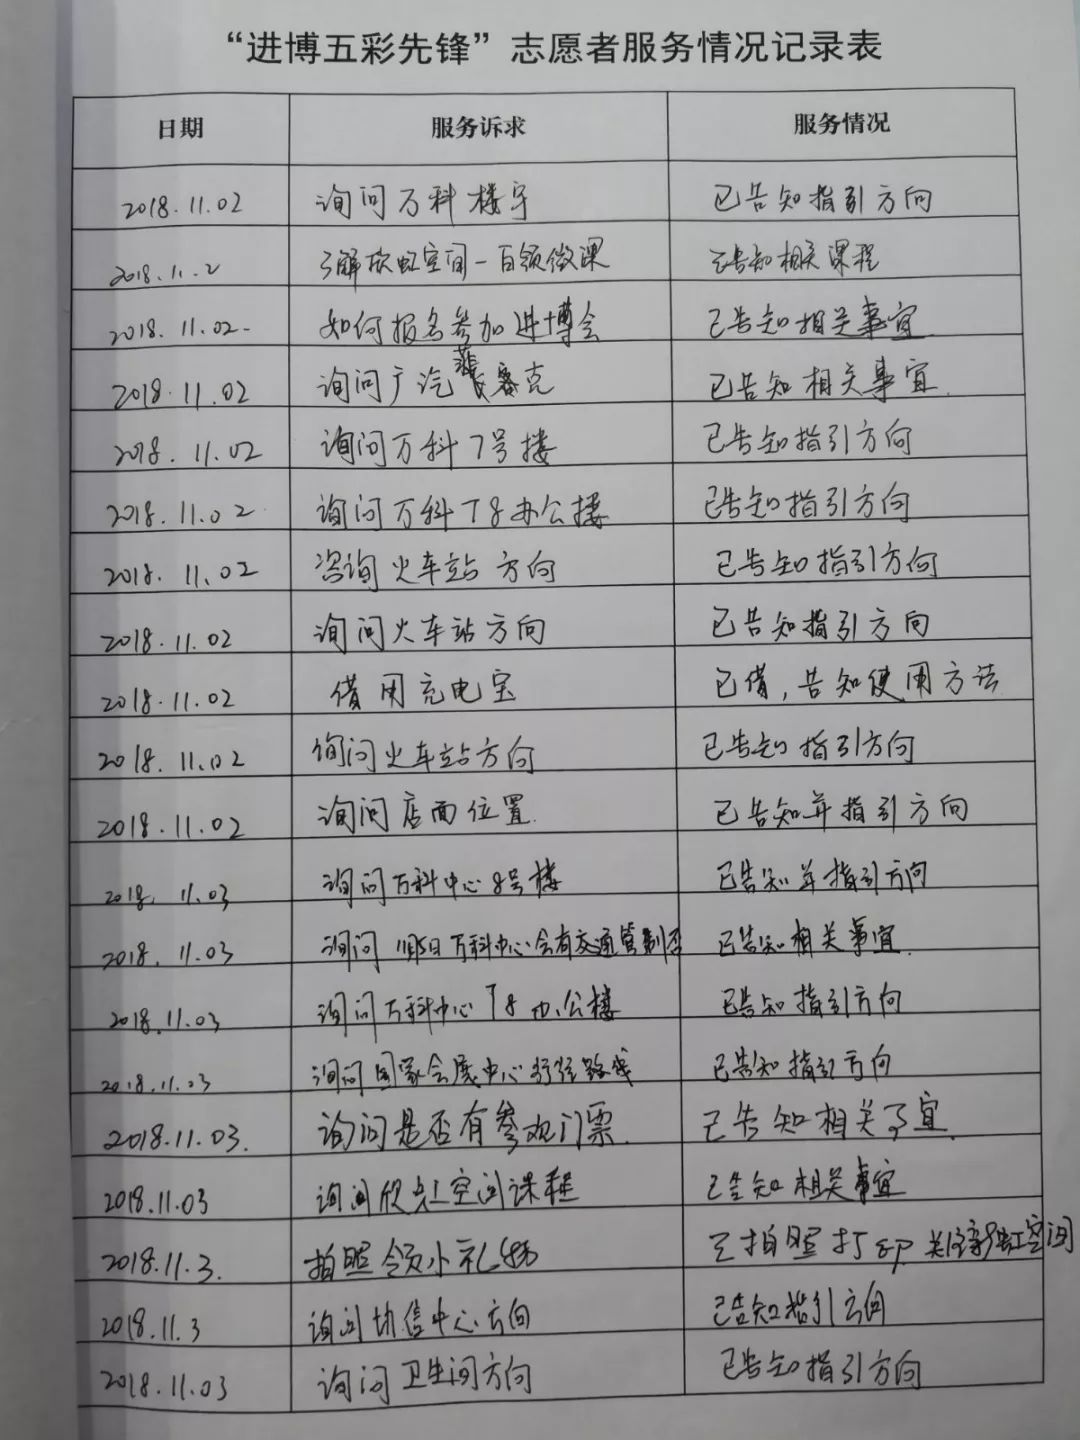 “进博五彩先锋”志愿者服务情况记录表
日期 服务诉求 服务情况
2018.11.02 询问万科楼宇 已告知指引方向
2018.11.2 了解欣虹空间一白领微课 已告知相关课程
2018.11.02. 如何报名参加进博会 已告知相关事宜.
2018.11.02 询问广汽菲 克 已告知相关事宜.
2018.11.02 询问万科7号楼 已告知指引方向
2018.11.02 询问万科T8办公楼 已告知指引方向
2018.11.02 咨询火车站方向 已告知指引方向
2018.11.02 询问火车站方向 已告知指引方向
2018.11.02 借用充电宝 已借，告知使用方法
2018.11.02 询问火车站方向 已告知指引方向
2018.11.02 询问店面位置. 已告知并指引方向
2018.11.03 询问万科中心8号楼 已告知并指引方向
2018.11.03 询问 万科中心会有交通管制否 已告知相关事宜.
2018.11.03 询问万科中心T8办公楼 已告知指引方向
2018.11.03 询问国家会展中心行径路线 已告知指引方向
2018.11.03. 询问是否有参观门票. 已告知相关事宜.
2018.11.03 询问欣虹空间课程 已告知相关事宜
2018.11.3. 拍照领小礼物 已拍照打印 关注新虹空间
2018.11.3 询问协信中心方向 已告知指引方向
2018.11.03 询问卫生间方向 已告知指引方向